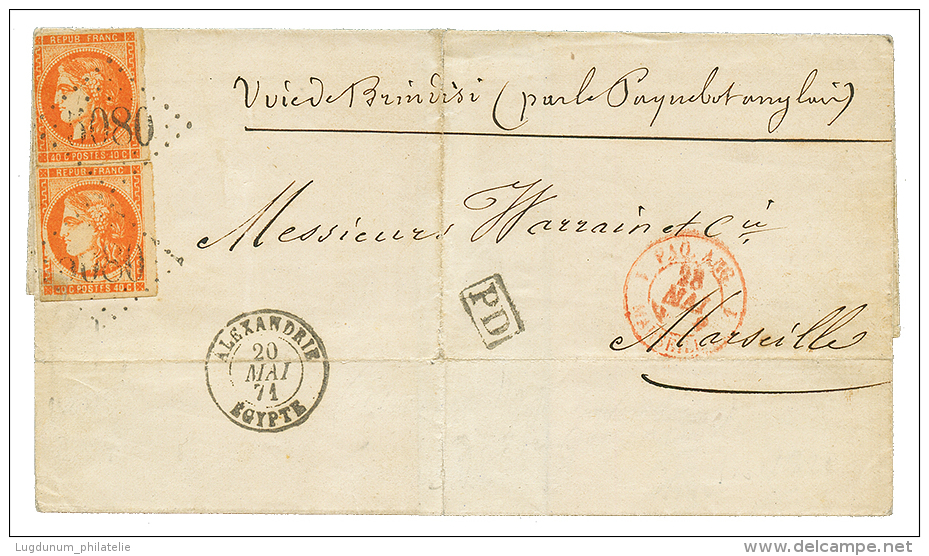 REPUB FRANC
40 C POSTES 40 C
5080
REPUB FRANC
40 C POSTES 40 C
5080
Voie de Brindisi (par le Paquebot anglais)
Messieurs Warrain et Cie
Marseille
PD
ALEXANDRIE
20
MAI
71
EGYPTE
PAQ. ANG.
28
MAI
MARSEILLE
Lugdunum_philatelie
www.delcampe.net